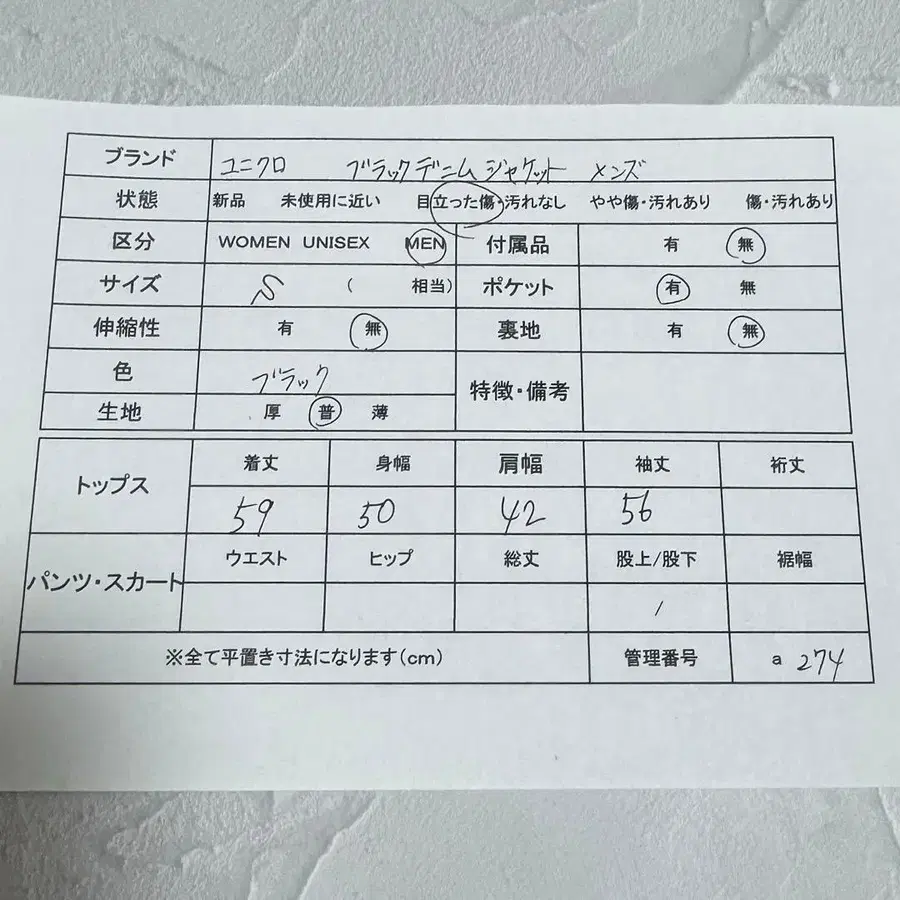 ブランド ユニクロ ブラックデニムジャケット メンズ
状態 新品 未使用に近い 目立った傷・汚れなし やや傷・汚れあり 傷・汚れあり
区分 WOMEN UNISEX MEN 付属品 有 無
サイズ S ( 相当) ポケット 有 無
伸縮性 有 無 裏地 有 無
色 ブラック 特徴・備考
生地 厚 普 薄
トップス 着丈 身幅 肩幅 袖丈 裄丈
59 50 42 56
パンツ・スカート ウエスト ヒップ 総丈 股上/股下 裾幅
/
※全て平置き寸法になります(cm) 管理番号 a 274